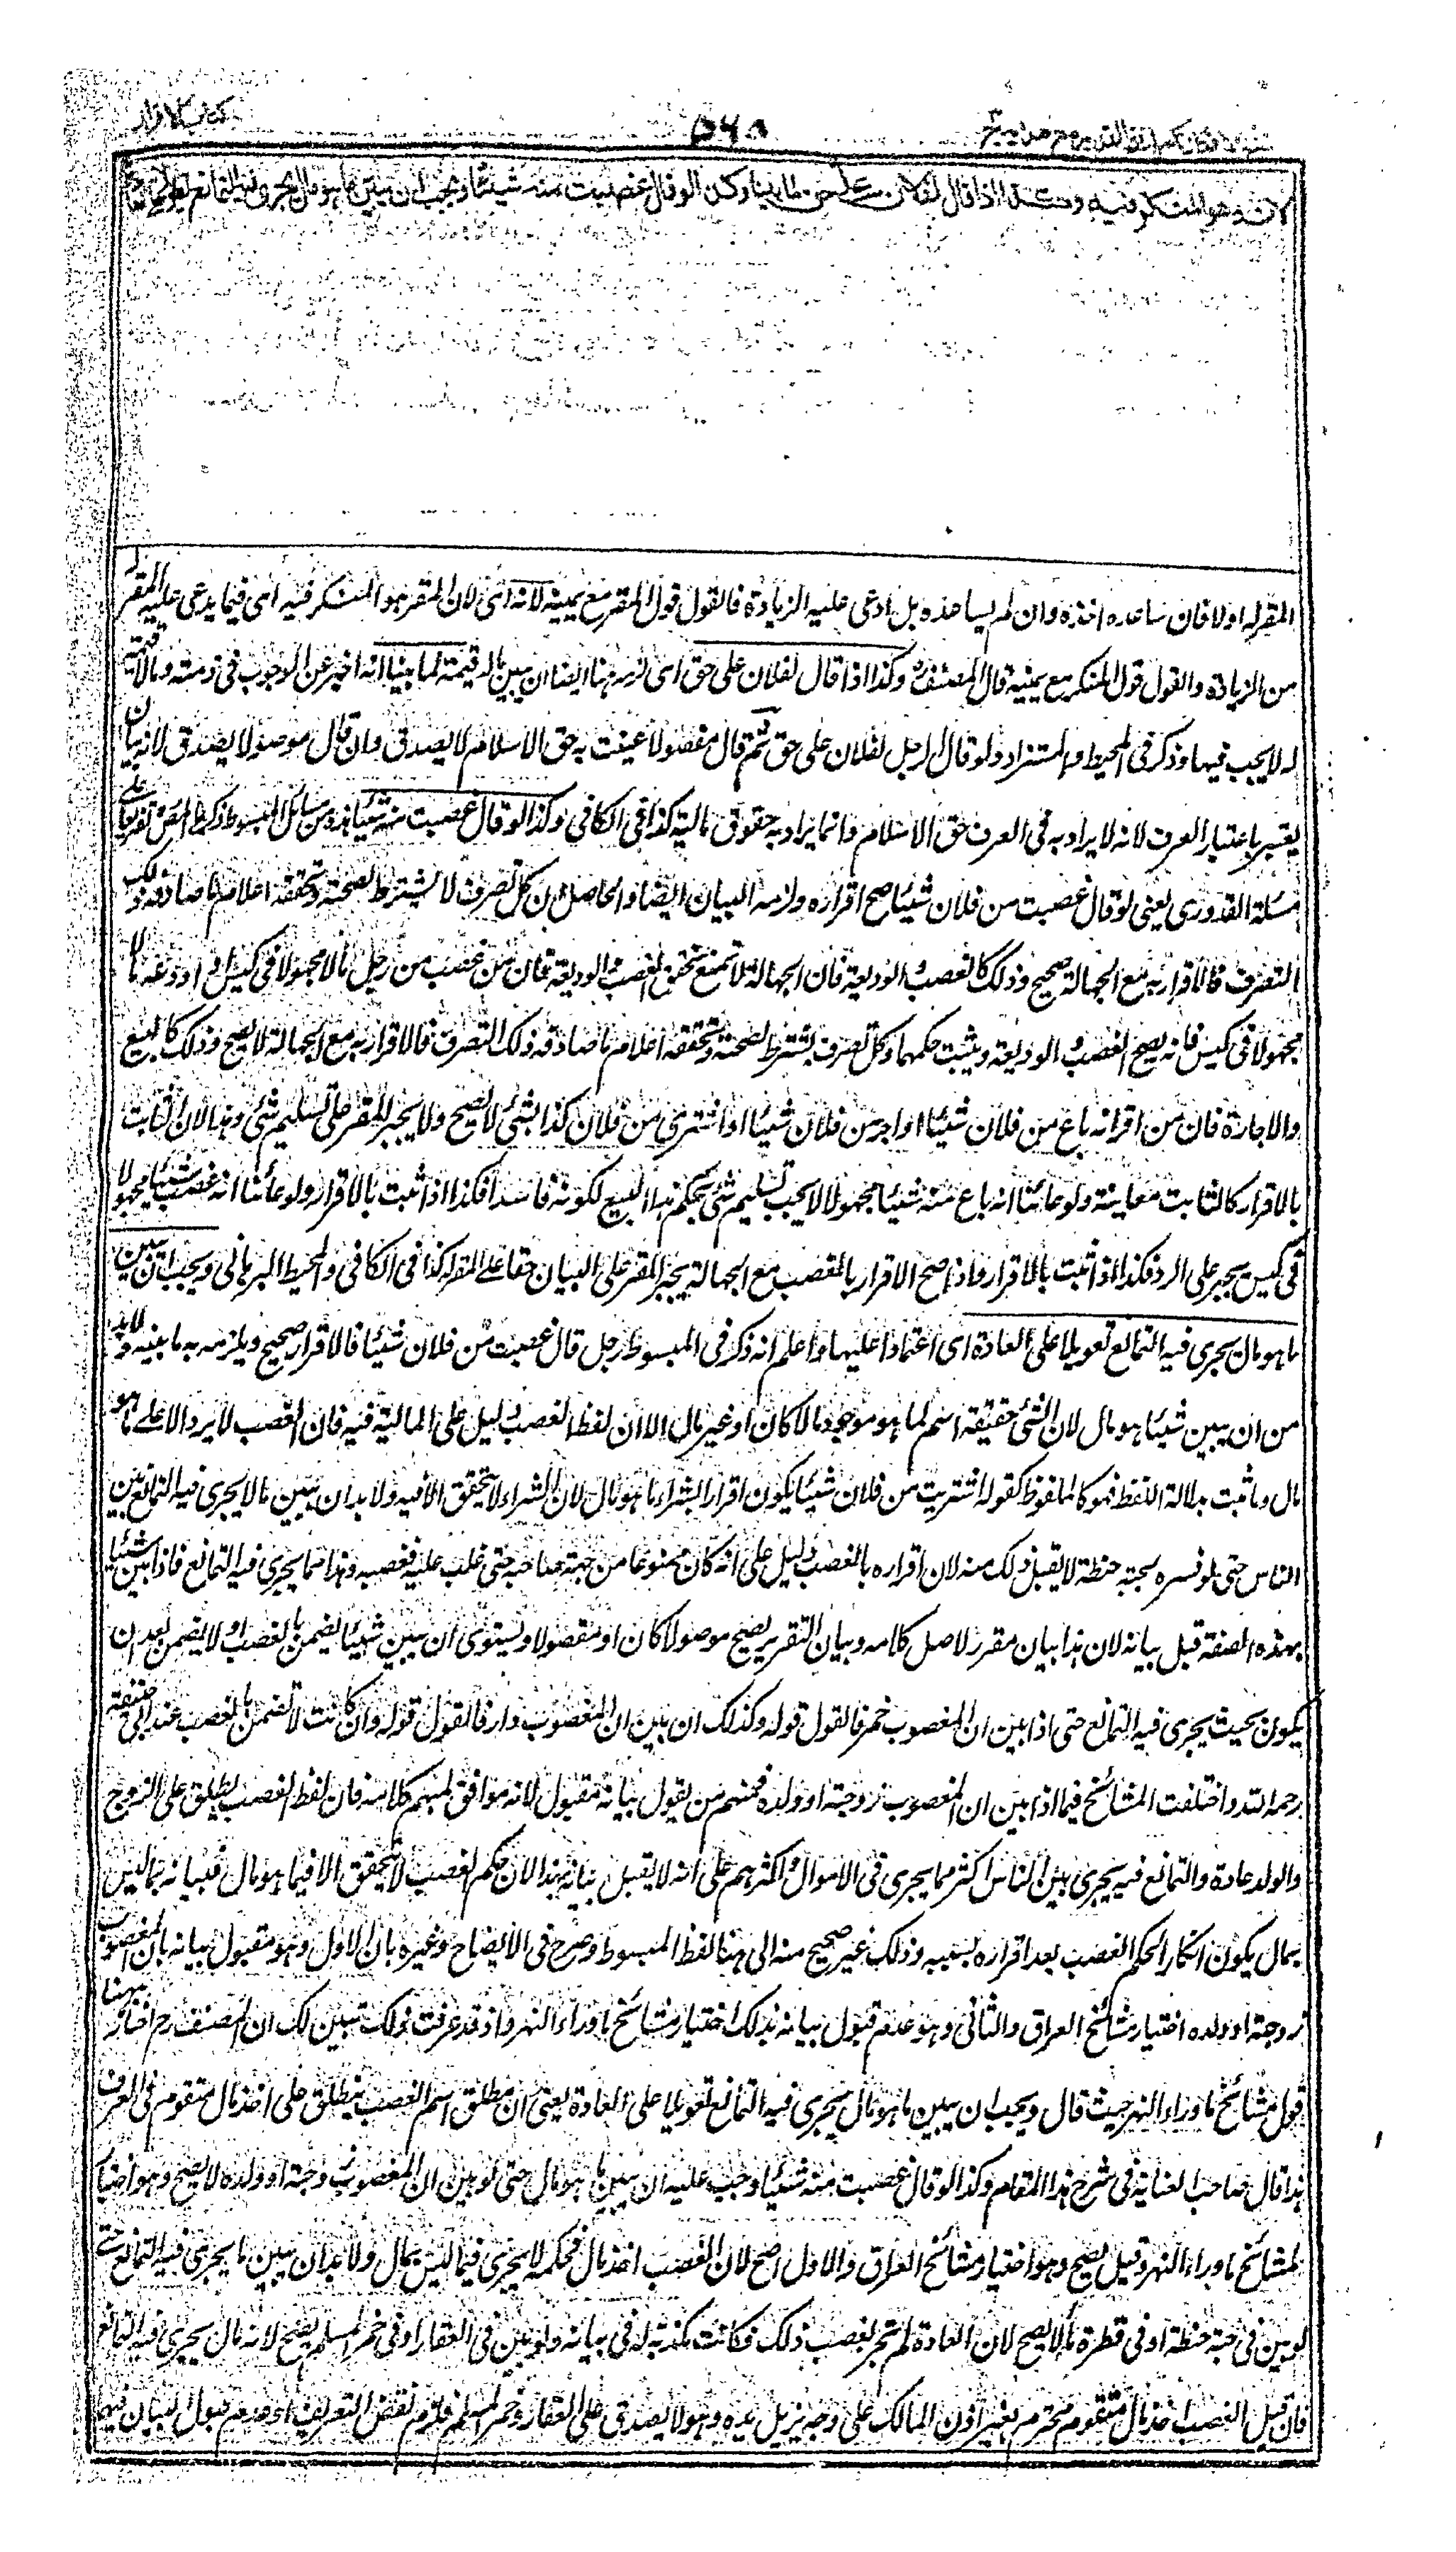 كتاب الاقرار
٥٦٥
لانه هو المنكر فيه وكذا اذا قال لفلان على حق لما بينا وكذا لو قال غصبت منه شيئا ويجب ان يبين ما هو مال يجرى فيه التمانع تعويلا
المقر له او لا فان ساعده اخذه وان لم يساعده بل ادعى عليه الزيادة فالقول قول المقر مع يمينه لانه اى لان المقر هو المنكر فيه اى فيما يدعى عليه المقر له
من الزيادة والقول قول المنكر مع يمينه قال المصنف وكذا اذا قال لفلان على حق اى لزمه ههنا ايضا ان يبين ماله قيمة لما بينا انه اخبر عن الوجوب فى ذمته وما لا قيمة
له لا يجب فيها وذكر فى المحيط والمستزاد ولو قال الرجل لفلان على حق ثم قال مفصولا عنيت به حق الاسلام لا يصدق وان قال موصولا يصدق لانه بيان
يعتبر باعتبار العرف لانه لا يراد به فى العرف حق الاسلام وانما يراد به حقوق مالية كذا فى الكافى وكذا لو قال غصبت منه شيئا هذه من مسائل المبسوط ذكرها المص تفريعا على
مسئلة القدورى يعنى لو قال غصبت من فلان شيئا صح اقراره ولزمه البيان ايضا والحاصل ان كل تصرف لا يشترط لصحته وتحققه اعلام ما صادفه ذلك
التصرف فالاقرار به مع الجهالة صحيح وذلك كالغصب والوديعة فان الجهالة لا تمنع تحقق الغصب والوديعة فان من غصب من رجل مالا مجهولا فى كيس او اودعه مالا
مجهولا فى كيس فانه يصح الغصب والوديعة ويثبت حكمهما وكل تصرف يشترط لصحته وتحققه اعلام ما صادفه ذلك التصرف فالاقرار به مع الجهالة لا يصح وذلك كالبيع
والاجارة فان من اقر انه باع من فلان شيئا او اجر من فلان شيئا او اشترى من فلان كذا بشئ لا يصح ولا يجبر المقر على تسليم شئ وهذا لان الثابت
بالاقرار كالثابت معاينة ولو عاينا انه باع منه شيئا مجهولا لا يجب تسليم شئ بحكم هذا البيع لكونه فاسدا فكذا اذا ثبت بالاقرار ولو عاينا انه غصب شيئا مجهولا
فى كيس يجبر على الرد فكذا اذا ثبت بالاقرار واذا صح الاقرار بالغصب مع الجهالة يجبر المقر على البيان حقا على المقر له كذا فى الكافى والمحيط البرهانى ويجب ان يبين
ما هو مال يجرى فيه التمانع تعويلا على العادة اى اعتمادا عليها واعلم انه ذكر فى المبسوط رجل قال غصبت من فلان شيئا فالاقرار صحيح ويلزمه به ما بينه ولا بد
من ان يبين شيئا هو مال لان الشئ حقيقة اسم لما هو موجود مالا كان او غير مال الا ان لفظ الغصب دليل على المالية فيه فان الغصب لا يرد الا على ما هو
مال وما ثبت بدلالة اللفظ فهو كالملفوظ كقوله اشتريت من فلان شيئا يكون اقرارا بشراء ما هو مال لان الشراء لا يتحقق الا فيه ولا بد ان يبين مالا يجرى فيه التمانع بين
الناس حتى لو فسره بحبة حنطة لا يقبل ذلك منه لان اقراره بالغصب دليل على انه كان ممنوعا من جهة صاحبه حتى غلب عليه فغصبه وهذا مما يجرى فيه التمانع فاذا بين شيئا
بهذه الصفة قبل بيانه لان هذا بيان مقرر لاصل كلامه وبيان التقرير يصح موصولا كان او مفصولا ويستوى ان يبين شيئا يضمن بالغصب او لا يضمن بعد ان
يكون بحيث يجرى فيه التمانع حتى اذا بين ان المغصوب خمر فالقول قوله وكذلك ان بين ان المغصوب دار فالقول قوله وان كانت لا تضمن بالغصب عند ابى حنيفة
رحمه الله واختلفت المشائخ فيما اذا بين ان المغصوب زوجته او ولده فمنهم من يقول بيانه مقبول لانه موافق لمبهم كلامه فان لفظ الغصب يطلق على الزوج
والولد عادة والتمانع فيه يجرى بين الناس اكثر مما يجرى فى الاموال واكثرهم على انه لا يقبل بيانه بهذا لان حكم الغصب لا يتحقق الا فيما هو مال فبيانه بما ليس
بمال يكون انكارا لحكم الغصب بعد اقراره بسببه وذلك غير صحيح منه الى هنا لفظ المبسوط وصرح فى الايضاح وغيره بان الاول وهو مقبول بيانه بان المغصوب
زوجته او ولده اختيار مشائخ العراق والثانى وهو عدم قبول بيانه بذلك اختيار مشائخ ما وراء النهر واذ قد عرفت ذلك تبين لك ان المصنف رح اختار ههنا
قول مشائخ ما وراء النهر حيث قال ويجب ان يبين ما هو مال يجرى فيه التمانع تعويلا على العادة يعنى ان مطلق اسم الغصب ينطلق على اخذ مال متقوم فى العرف
هذا قال صاحب العناية فى شرح هذا المقام وكذا لو قال غصبت منه شيئا وجب عليه ان يبين ما هو مال حتى لو بين ان المغصوب زوجته او ولده لا يصح وهو اختيار
مشائخ ما وراء النهر وقيل يصح وهو اختيار مشائخ العراق والاول اصح لان الغصب اخذ مال فحكمه لا يجرى فيما ليس بمال ولا بد ان يبين ما يجرى فيه التمانع حتى
لو بين فى حبة حنطة او فى قطرة ماء لا يصح لان العادة لم تجر بغصب ذلك فكانت مكذبة له فى بيانه ولو بين فى العقار او فى خمر المسلم يصح لانه مال يجرى فيه التمانع
فان قيل الغصب اخذ مال متقوم محترم بغير اذن المالك على وجه يزيل يده وهو لا يصدق على العقار وخمر المسلم فلزم نقض التعريف او عدم قبول البيان فيهما